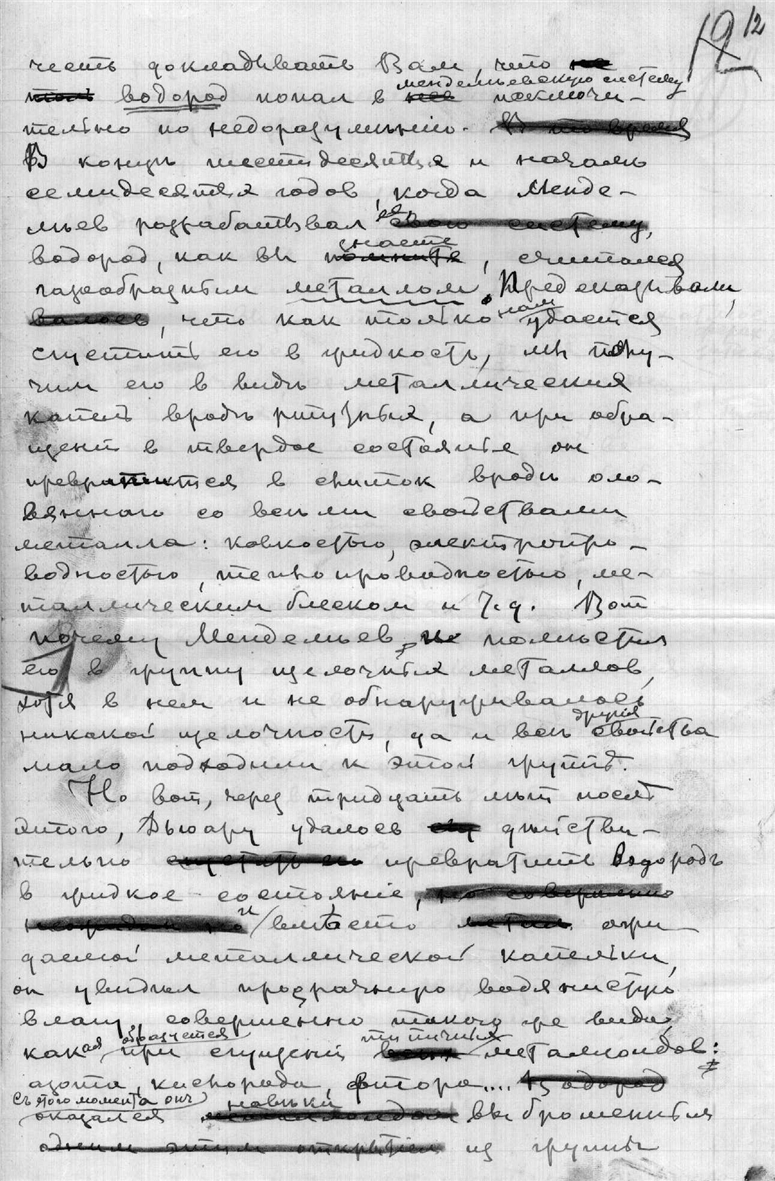 12 12
честь докладывать Вам, что не
менделѣевскую систему
водород попал в нее исключи-
тельно по недоразумѣнію. В то время
В концѣ шестидесятых и началѣ
семидесятых годов, когда Менде-
лѣев разрабатывал ее свою систему,
знаете
водород, как вы помните, считался
газообразным металлом. Предсказывали,
нам
что как только удастся
сгустить его в жидкость, мы полу-
чим его в видѣ металлических
капель вродѣ ртутных, а при обра-
щеніи в твердое состояніе он
превратится в слиток вродѣ оло-
вянного со всѣми свойствами
металла: ковкостью, электропро-
водностью, теплопроводностью, ме-
таллическим блеском и т.д. Вот
почему Менделѣев и помѣстил
его в группу щелочных металлов,
хотя в нем и не обнаруживалось
другія
никакой щелочности, да и всѣ свойства
мало подходили к этой группѣ.
Но вот, через тридцать лѣт послѣ
этого, Дьюару удалось дѣйстви-
тельно сгустить его превратить водородъ
в жидкое состояніе, но совершенно
и вмѣсто ожи-
даемой металлической капельки,
он увидѣл прозрачную водянистую
влагу совершенно такого же вида,
образуется типичных
какая при сгущеніи всѣх металлоидов:
азота, кислорода, фтора.... Водород
Съ этого момента онъ навѣки
оказался металлоидом выброшенным
одним этим открытіем из группы